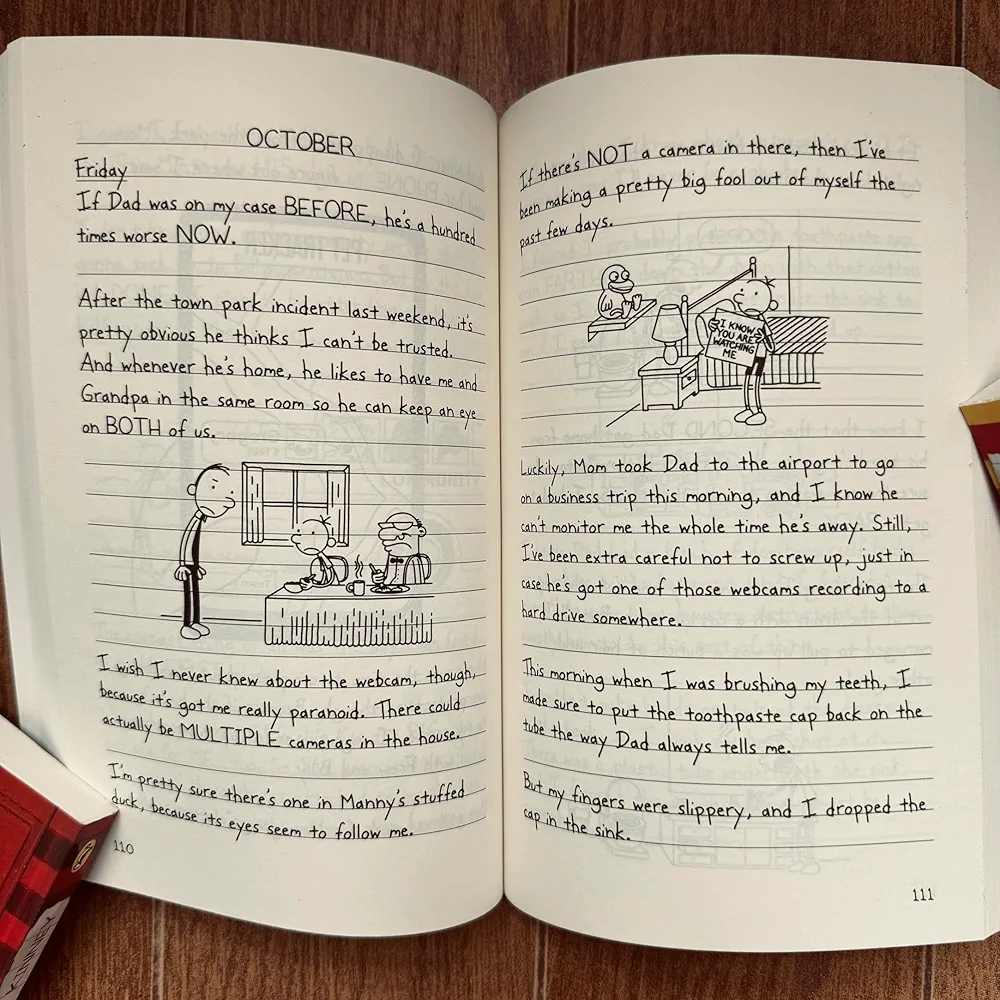 OCTOBER
Friday
If Dad was on my case BEFORE, he's a hundred
times worse NOW.
After the town park incident last weekend, it's
pretty obvious he thinks I can't be trusted.
And whenever he's home, he likes to have me and
Grandpa in the same room so he can keep an eye
on BOTH of us.
I wish I never knew about the webcam, though,
because it's got me really paranoid. There could
actually be MULTIPLE cameras in the house.
I'm pretty sure there's one in Manny's stuffed
duck, because its eyes seem to follow me.
110
If there's NOT a camera in there, then I've
been making a pretty big fool out of myself the
past few days.
I KNOW
YOU ARE
WATCHING
ME
Luckily, Mom took Dad to the airport to go
on a business trip this morning, and I know he
can't monitor me the whole time he's away. Still,
I've been extra careful not to screw up, just in
case he's got one of those webcams recording to a
hard drive somewhere.
This morning when I was brushing my teeth, I
made sure to put the toothpaste cap back on the
tube the way Dad always tells me.
But my fingers were slippery, and I dropped the
cap in the sink.
111
KINNEY